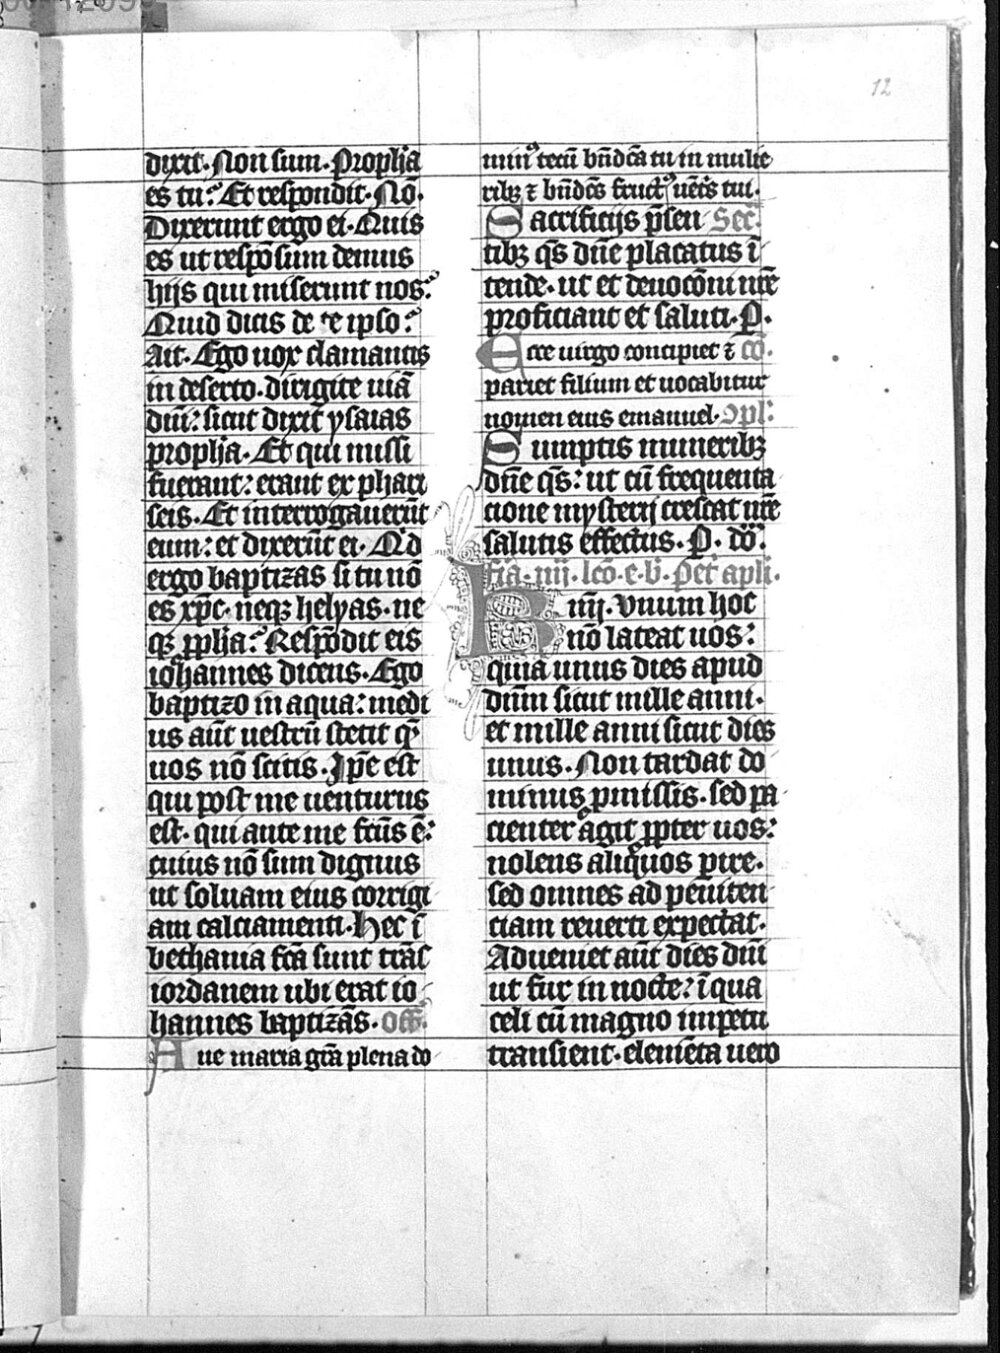 12
dixit. Non sum. Propħa
es tu? Et respondit. Nō.
Dixerunt ergo ei. Quis
es ut respōsum demus
hijs qui miserunt nos?
Quid dicis de te ipso?
Ait. Ego uox clamantis
in deserto. dirigite uiā
dñi: sicut dixit ysaias
propħa. Et qui missi
fuerant: erant ex phari
seis. Et interrogauerūt
eum: et dixerūt ei. Qͥd
ergo baptizas si tu nō
es xp̄c. neqꝫ helyas. ne
qꝫ ꝓpħa? Respōdit eis
iohannes dicens. Ego
baptizo in aqua: medi
us aūt uestrū stetit qͣ
uos nō scitis. Ip̄e est
qui post me uenturus
est. qui ante me fc̄us ē:
cuius nō sum dignus
ut soluam eius corrigi
am calciamenti. Hec ī
bethania fc̄a sunt trās
iordanem ubi erat io
hannes baptizās. Off.
Aue maria gr̄a plena do
minꝰ tecū bn̄dc̄a tu in mulie
ribꝫ ⁊ bn̄dc̄s fructꝰ uēt̄s tui.
Sacrificijs p̄sen Sec̄.
tibꝫ qs̄ dn̄e placatus ī
tende. ut et deuoc̄oni nr̄e
proficiant et saluti. P.
Ecce uirgo concipiet ⁊ cō.
pariet filium et uocabitur
nomen eius emanuel. Ↄpl:
Sumptis muneribꝫ
dn̄e qs̄: ut cū frequenta
cione mysterij crescat nr̄e
salutis effectus. P. dō:
fīa. iiij. lc̄o. e. b̄. Pet̄ apl̄i.
Kmi. Vnum hoc
nō lateat uos:
quia unus dies apud
dn̄m sicut mille anni.
et mille anni sicut dies
unus. Non tardat do
minus ꝓmissis. sed pa
cienter agit ꝓpter uos:
nolens aliquos ꝑire.
sed omnes ad peniten
ciam reuerti expectat.
Adueniet aūt dies dn̄i
ut fur in nocte: ī qua
celi cū magno impetu
transient. elemēta uero